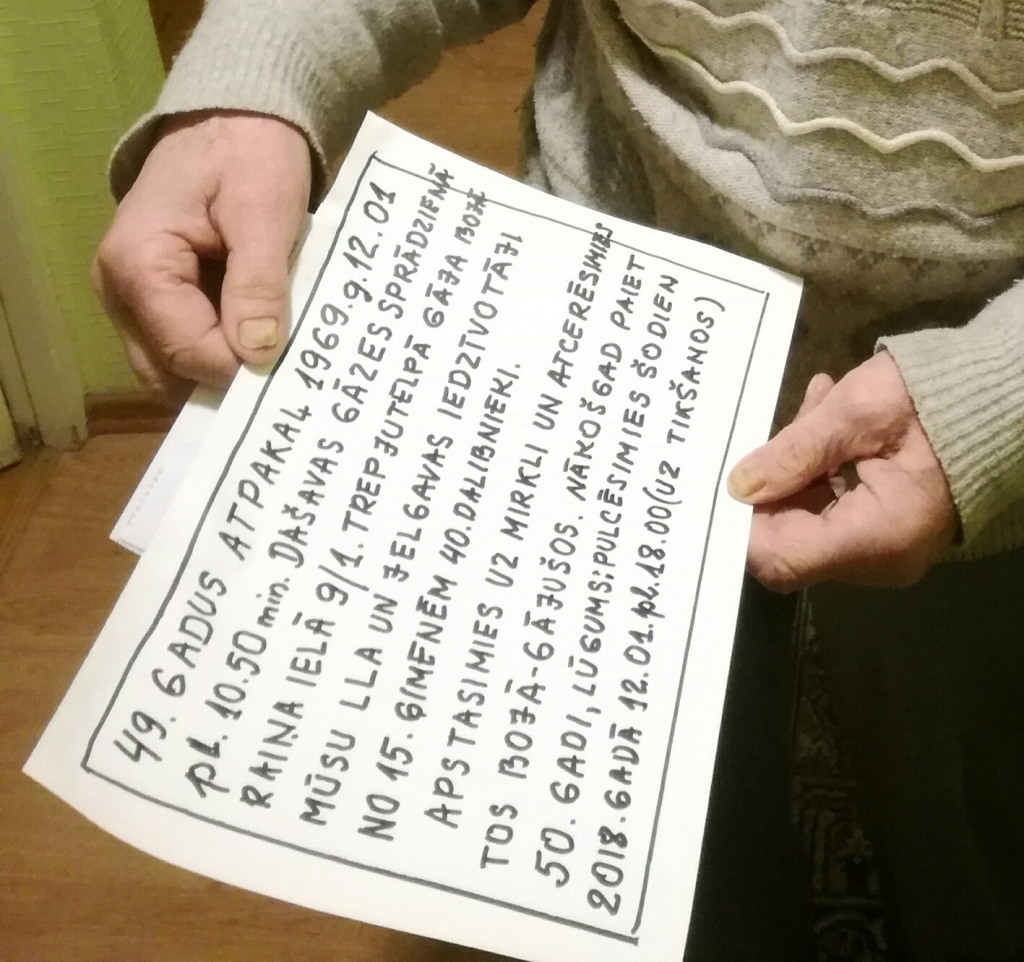 49. GADUS ATPAKAĻ 1969.g.12.01
pl. 10.50 min. DAŠAVAS GĀZES SPRĀDZIENĀ
RAIŅA IELĀ 9/1. TREPJUTELPĀ GĀJA BOJĀ
MŪSU LLA UN JELGAVAS IEDZĪVOTĀJI
NO 15. ĢIMENĒM 40.DALIBNIEKI.
APSTASIMIES UZ MIRKLI UN ATCERĒSIMIES
TOS BOJĀ-GĀJUŠOS. NĀKOŠGAD PAIET
50. GADI, LŪGUMS:PULCĒSIMIES ŠODIEN
2018.GADĀ 12.01.pl.18.00(UZ TIKŠANOS)